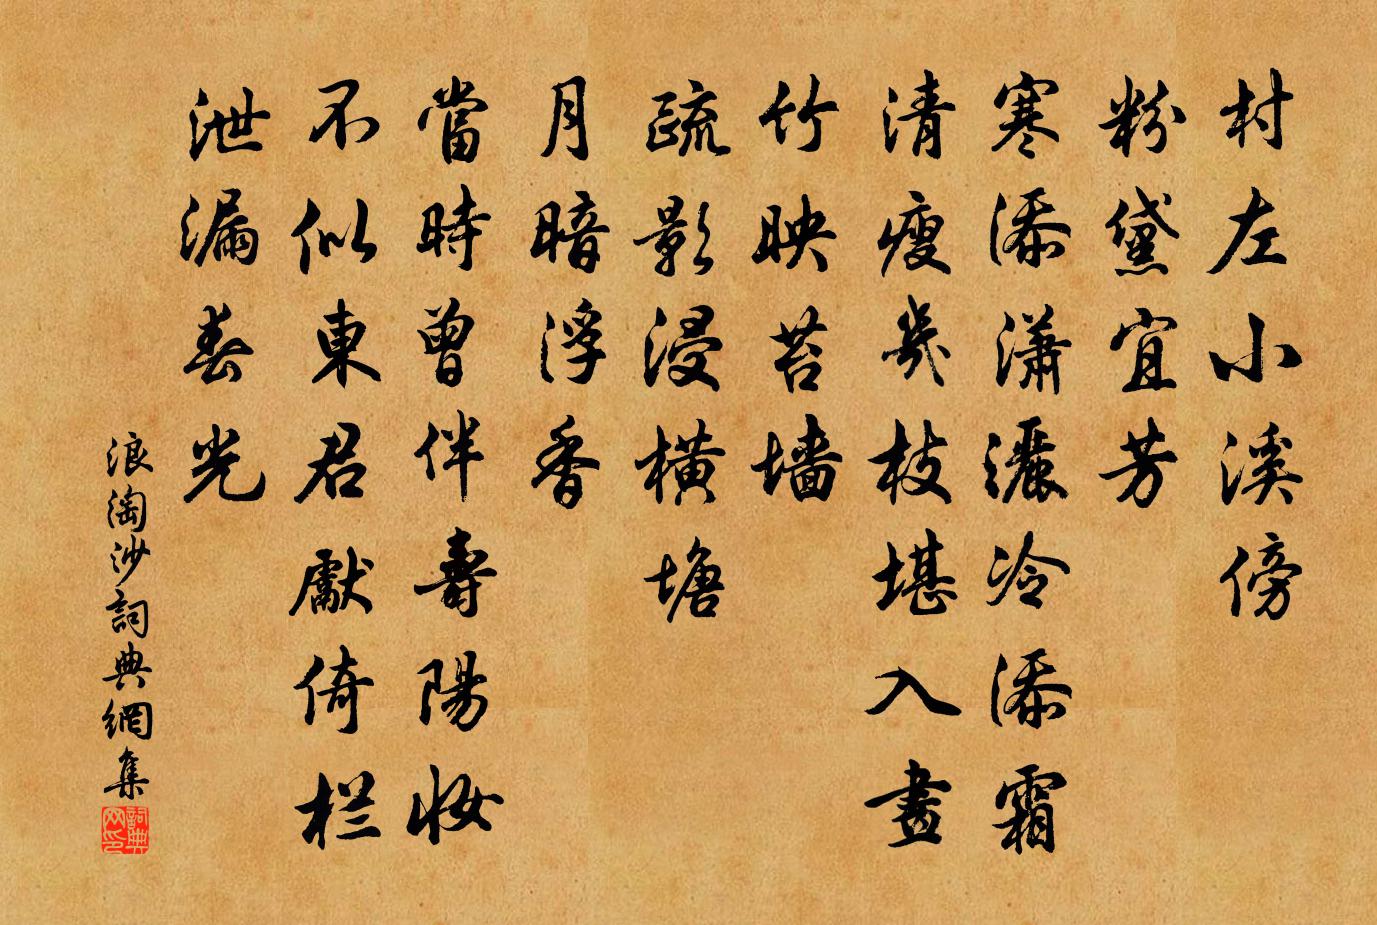 村左小溪傍
粉黛宜芳
寒添潇灑冷添霜
清瘦幾枝堪入畫
竹映苔墙
疏影浸横塘
月暗浮香
當時曾伴壽陽妝
不似東君獻倚栏
泄漏春光
浪淘沙詞典網集
詞典
网印